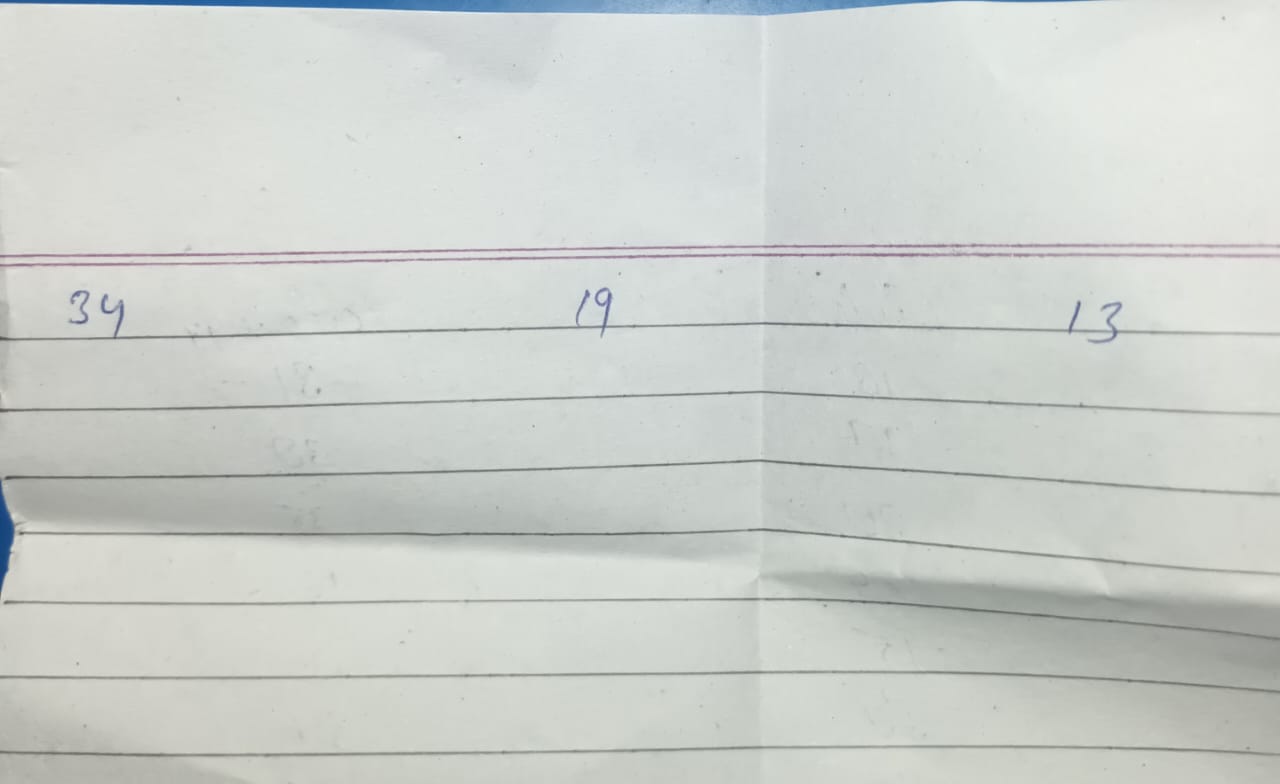 34 19 13